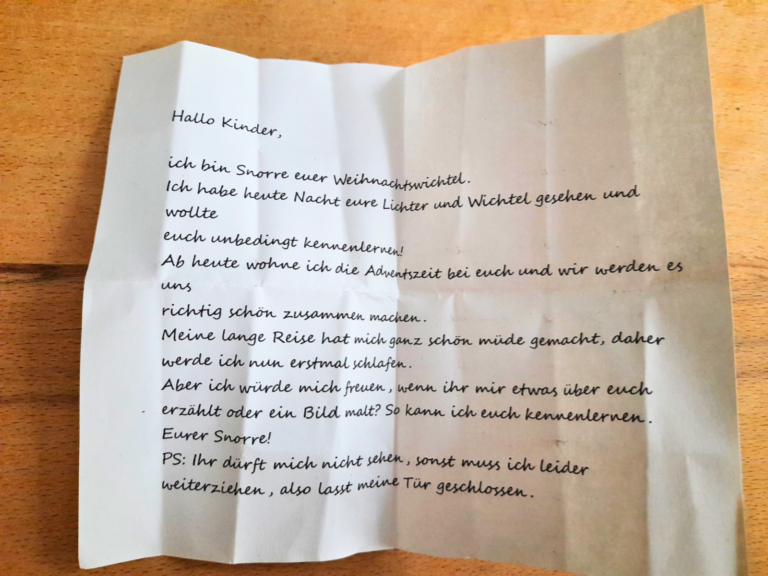 Hallo Kinder,
ich bin Snorre euer Weihnachtswichtel.
Ich habe heute Nacht eure Lichter und Wichtel gesehen und
wollte
euch unbedingt kennenlernen!
Ab heute wohne ich die Adventszeit bei euch und wir werden es
uns
richtig schön zusammen machen.
Meine lange Reise hat mich ganz schön müde gemacht, daher
werde ich nun erstmal schlafen.
Aber ich würde mich freuen, wenn ihr mir etwas über euch
erzählt oder ein Bild malt? So kann ich euch kennenlernen.
Eurer Snorre!
PS: Ihr dürft mich nicht sehen, sonst muss ich leider
weiterziehen, also lasst meine Tür geschlossen.